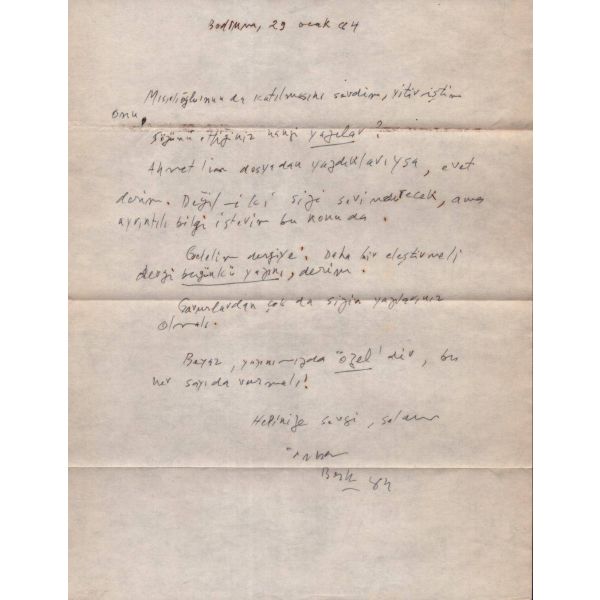 Bodrum, 29 ocak 84
da katılmasını sevdim,
onu.
Sözünü ettiğiniz hangi yazılar?
Ahmet'in dosyadan yazdıklarıysa, evet
derim. Değil-ki sizi sevindirecek, ama
ayrıntılı bilgi isterim bu konuda.
Gelelim dergiye: Daha bir eleştirmeli
dergi bugünkü yazını, derim.
çok da sizin yazılarınız
olmalı.
Beyaz, yazınımızda "özel"dir, bu
her sayıda vurmalı!
Hepinize sevgi, selam
Berk